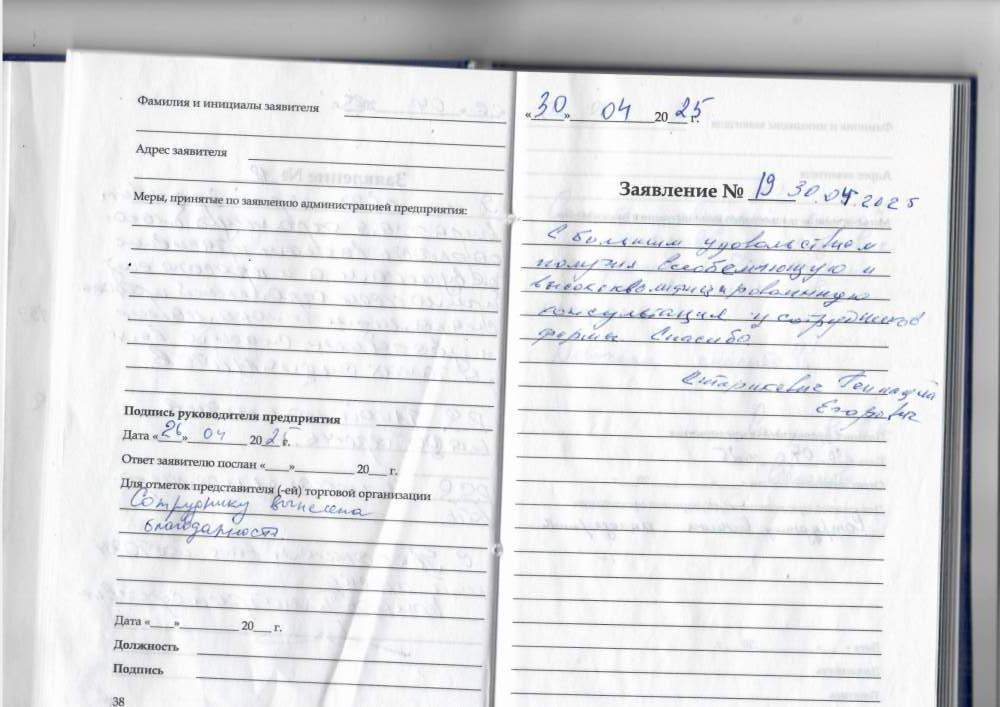 Фамилия и инициалы заявителя
Адрес заявителя
Меры, принятые по заявлению администрацией предприятия:
Подпись руководителя предприятия
Дата «26» 04 2025 г.
Ответ заявителю послан «____»__________ 20___ г.
Для отметок представителя (-ей) торговой организации
Сотруднику вынесена
благодарность
Дата «____»__________ 20___ г.
Должность
Подпись
38
«30» 04 2025 г.
Заявление № 19 30.04.2025
С большим удовольствием
получил всеобемлющую и
высококвалифицированную
консультацию у сотрудников
фирмы Спасибо
Геннадий
Егорович